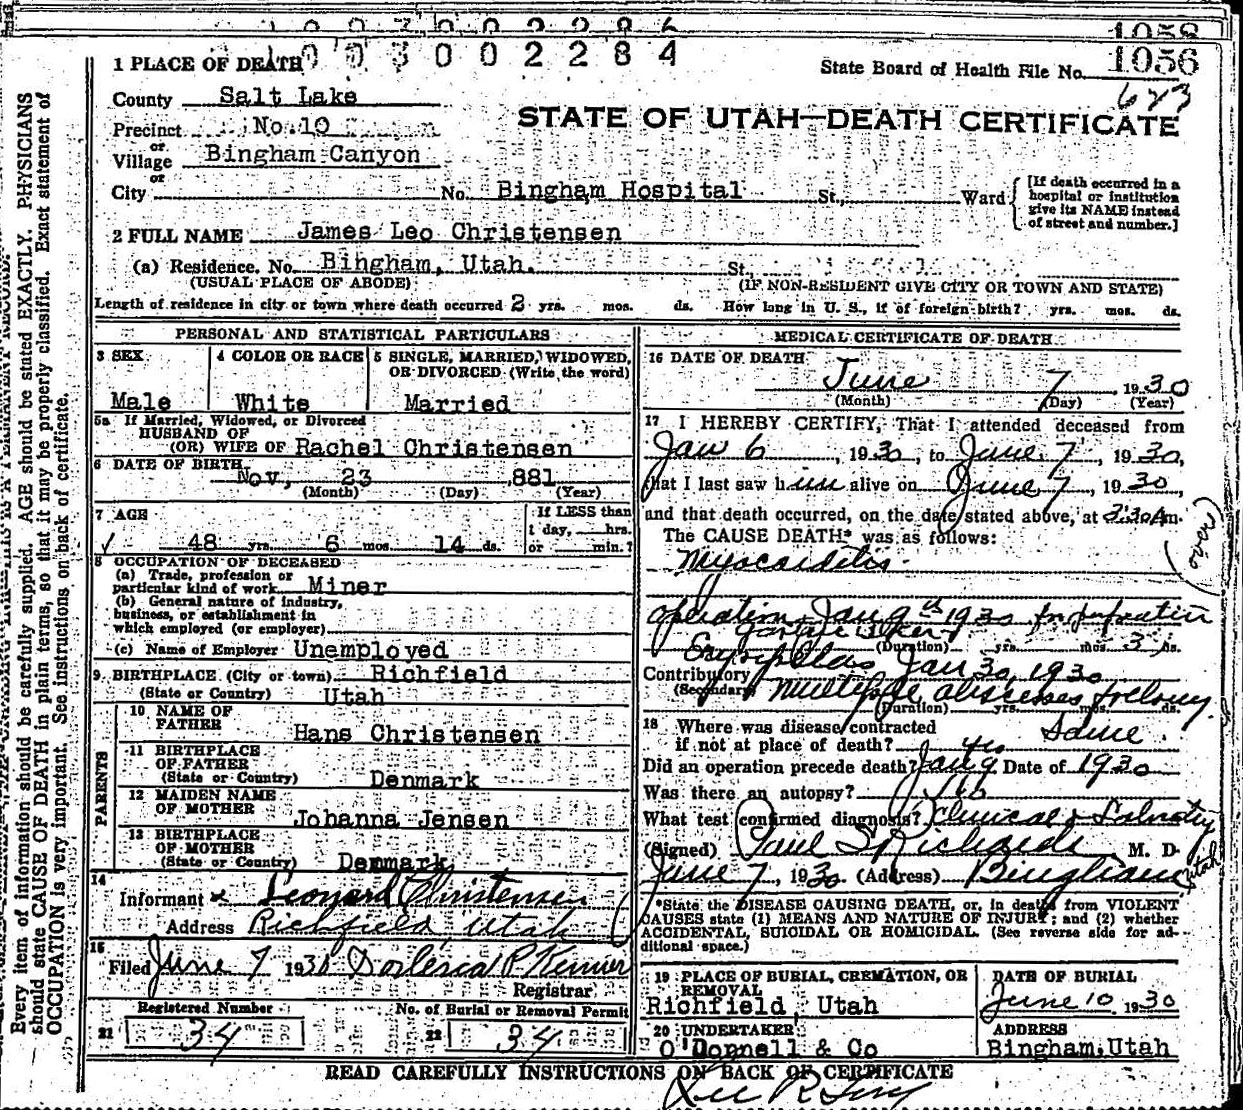 1058
1003002284
1056
State Board of Health File No.
623
STATE OF UTAH—DEATH CERTIFICATE
1 PLACE OF DEATH
County Salt Lake
Precinct No. 10
or
Village Bingham Canyon
or
City No. Bingham Hospital St., Ward
[If death occurred in a
hospital or institution
give its NAME instead
of street and number.]
2 FULL NAME James Leo Christensen
(a) Residence. No. Bingham, Utah. St.,
(USUAL PLACE OF ABODE) (IF NON-RESIDENT GIVE CITY OR TOWN AND STATE)
Length of residence in city or town where death occurred 2 yrs. mos. ds. How long in U. S., if of foreign birth? yrs. mos. ds.
PERSONAL AND STATISTICAL PARTICULARS
3 SEX
Male
4 COLOR OR RACE
White
5 SINGLE, MARRIED, WIDOWED,
OR DIVORCED (Write the word)
Married
5a If Married, Widowed, or Divorced
HUSBAND OF
(OR) WIFE OF Rachel Christensen
6 DATE OF BIRTH
Nov, 23 ,881
(Month) (Day) (Year)
7 AGE
48 yrs. 6 mos. 14 ds.
If LESS than
1 day, hrs.
or min.?
8 OCCUPATION OF DECEASED
(a) Trade, profession or
particular kind of work Miner
(b) General nature of industry,
business, or establishment in
which employed (or employer)
(c) Name of Employer Unemployed
9. BIRTHPLACE (City or town) Richfield
(State or Country) Utah
PARENTS
10 NAME OF
FATHER Hans Christensen
11 BIRTHPLACE
OF FATHER
(State or Country) Denmark
12 MAIDEN NAME
OF MOTHER Johanna Jensen
13 BIRTHPLACE
OF MOTHER
(State or Country) Denmark
14
Informant x Leonard Christensen
Address Richfield, Utah
15
Filed June 7 1930
Registrar
Registered Number
21 34
No. of Burial or Removal Permit
22 34
MEDICAL CERTIFICATE OF DEATH
16 DATE OF DEATH
June 7, 1930
(Month) (Day) (Year)
17 I HEREBY CERTIFY, That I attended deceased from
Jan 6, 1930, to June 7, 1930,
that I last saw him alive on June 7, 1930,
and that death occurred, on the date stated above, at 3:30 Am.
The CAUSE DEATH* was as follows:
(over)
Myocarditis.
operation Jan 9th 1930 for perforation
Gastric Ulcer
(Duration) yrs. mos. 3 ds.
Erysipelas Jan 30, 1930
Contributory
(Secondary) Multiple abscesses
(Duration) yrs. mos. ds.
18 Where was disease contracted
if not at place of death? Same.
yes
Did an operation precede death? Jan 9 Date of 1930
Was there an autopsy? No
What test confirmed diagnosis? Clinical &
(Signed) Paul S Richards M. D.
June 7, 1930 (Address) Bingham Utah
*State the DISEASE CAUSING DEATH, or, in deaths from VIOLENT
CAUSES state (1) MEANS AND NATURE OF INJURY; and (2) whether
ACCIDENTAL, SUICIDAL OR HOMICIDAL. (See reverse side for ad-
ditional space.)
19 PLACE OF BURIAL, CREMATION, OR
REMOVAL
Richfield, Utah
DATE OF BURIAL
June 10 1930
20 UNDERTAKER
O'Donnell & Co
ADDRESS
Bingham, Utah
READ CAREFULLY INSTRUCTIONS ON BACK OF CERTIFICATE
Every item of information should be carefully supplied. AGE should be stated EXACTLY. PHYSICIANS
should state CAUSE OF DEATH in plain terms, so that it may be properly classified. Exact statement of
OCCUPATION is very important. See instructions on back of certificate.